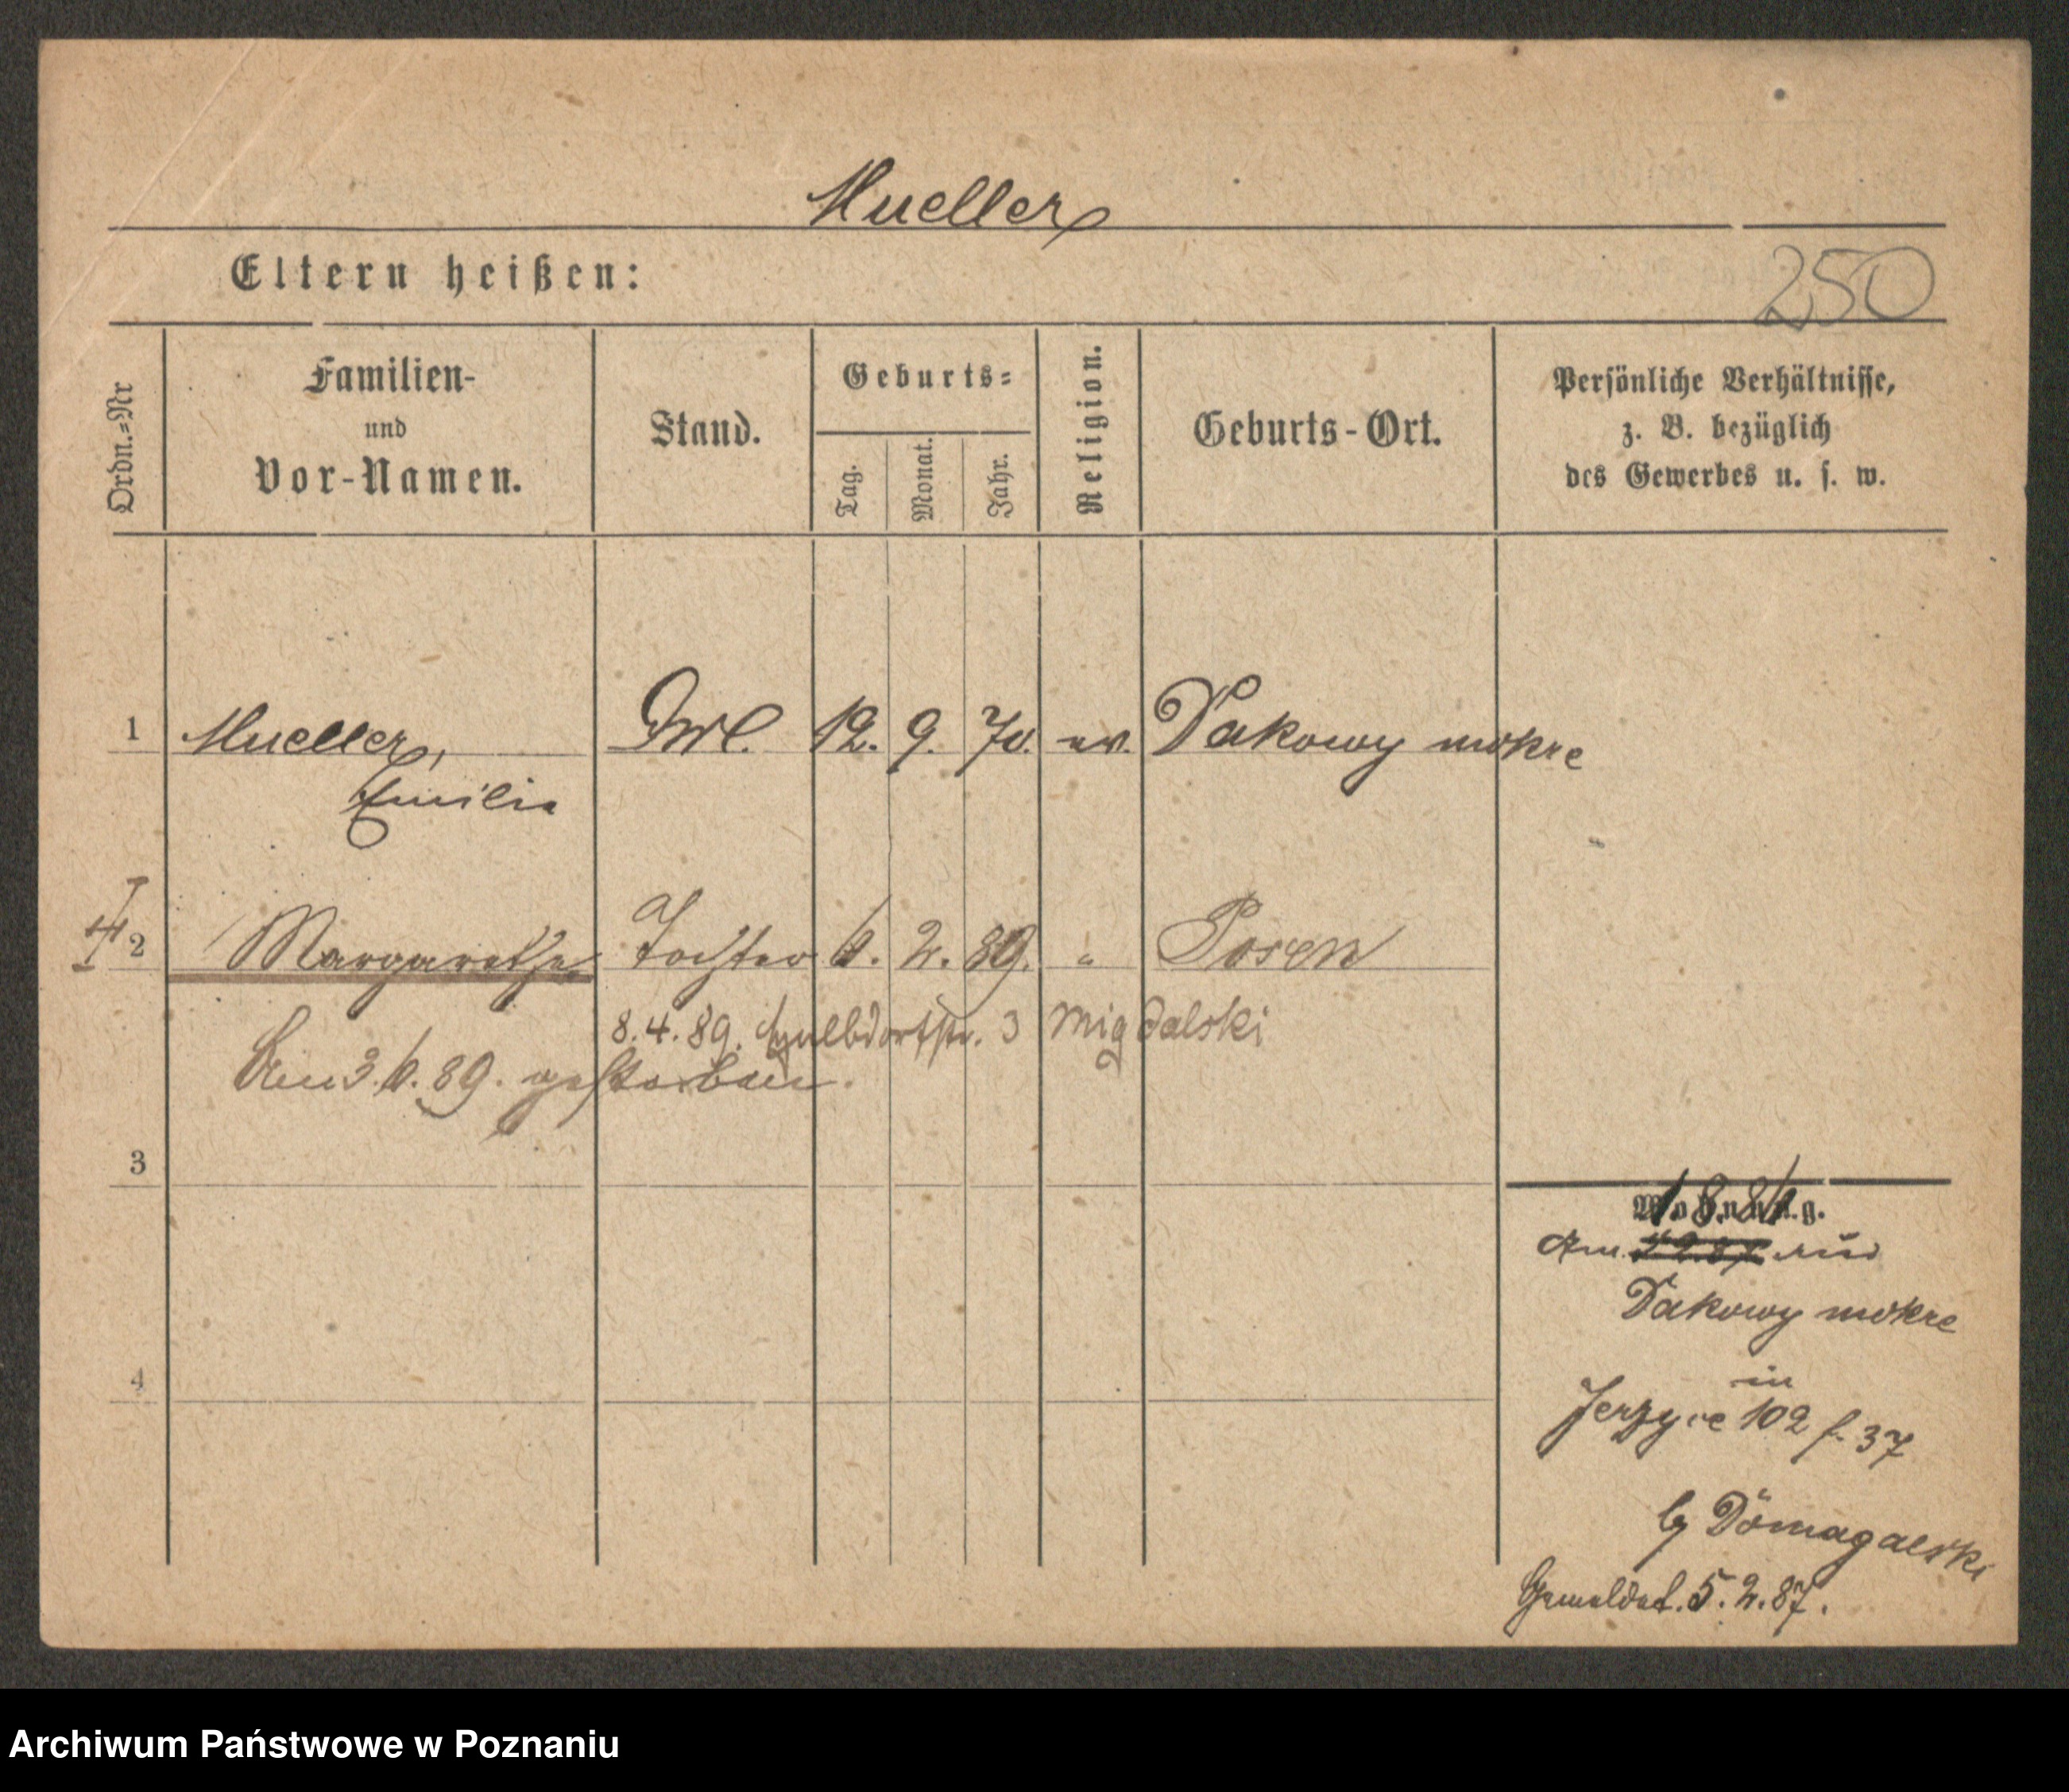 Mueller
Eltern heißen:
250
Ordn.-Nr
Familien-
und
Vor-Namen.
Stand.
Geburts-
Tag.
Monat.
Jahr.
Religion.
Geburts-Ort.
Persönliche Verhältnisse,
z. B. bezüglich
des Gewerbes u. s. w.
1 Mueller, 12. 9. 70. ev. Dakowy mokre
Emilie
2 Margarethe Tochter 6. 2. 89. " Posen
8.4.89. 3 Migdalski
Den 3.6.89. gestorben.
3
Wohnung.
Am aus
Dakowy mokre
4
in
Jerzyce 102 f. 37
by Domagalski
Gemeldet. 5.2.87.
Archiwum Państwowe w Poznaniu